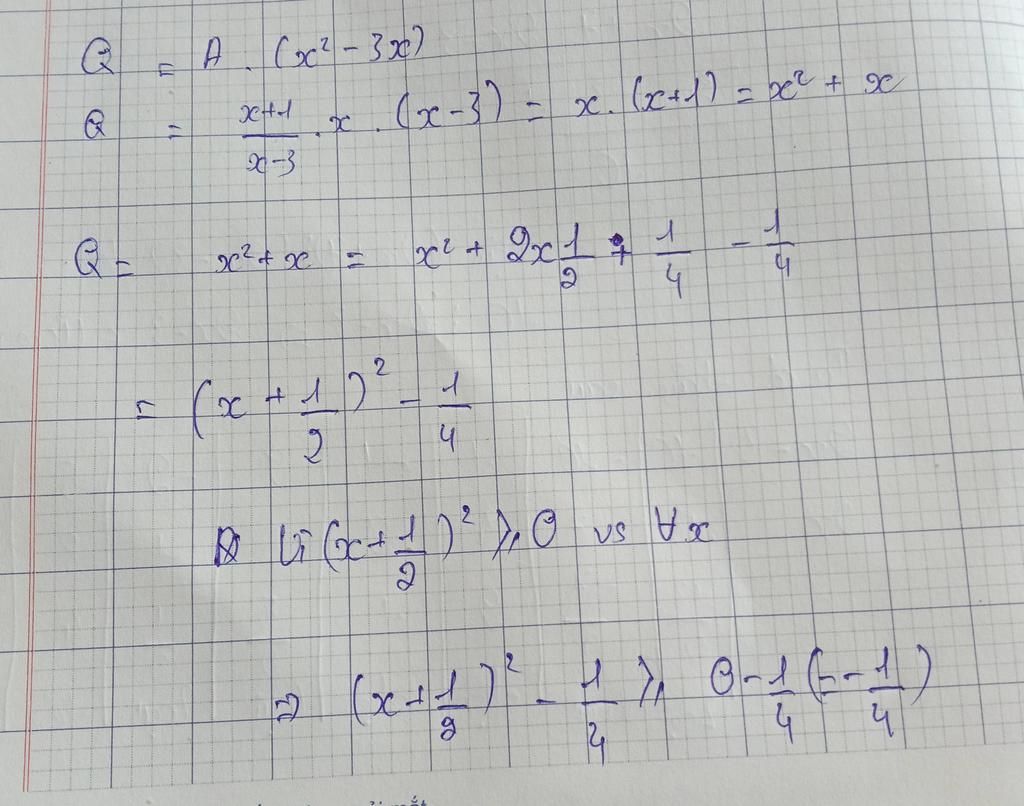 Q = A . (x² - 3x)
Q = \frac{x+1}{x-3} . x . (x-3) = x . (x+1) = x² + x
Q = x² + x = x² + 2x \frac{1}{2} + \frac{1}{4} - \frac{1}{4}
= (x + \frac{1}{2})² - \frac{1}{4}
Vì (x + \frac{1}{2})² ≥ 0 vs ∀x
⇒ (x + \frac{1}{2})² - \frac{1}{4} ≥ 0 - \frac{1}{4} (= - \frac{1}{4})